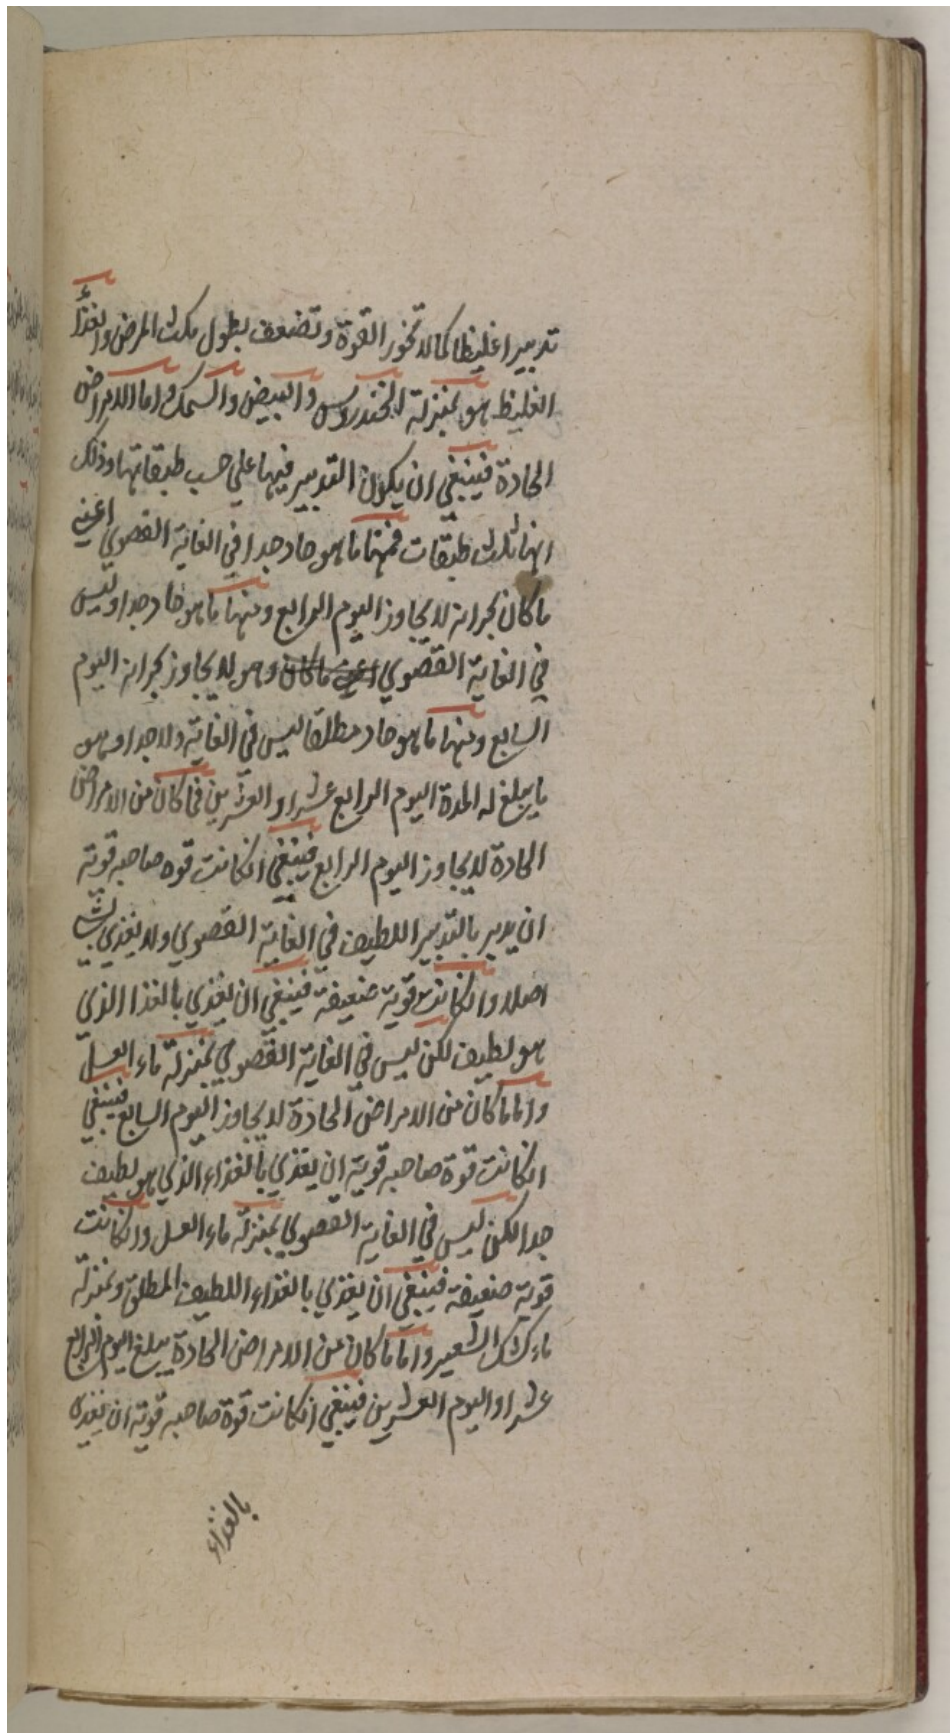 تدبيرا غليظا كمالا تخور القوة وتضعف بطول مكث المرض والغذاء
الغليظ هو بمنزلة الخندروس والبيض والسمك واما الامراض
الحادة فينبغي ان يكون التدبير فيها علي حسب طبقاتها وذلك
انها ثلث طبقات فمنها ما هو حاد جدا في الغاية القصوي اعني
ما كان بحرانه لا يجاوز اليوم الرابع ومنها ما هو حاد جدا وليس
في الغاية القصوي اعني ما كان وهو لا يجاوز بحرانه اليوم
السابع ومنها ما هو حاد مطلقا ليس في الغاية ولا جدا وهو
ما يبلغ له المدة اليوم الرابع عشر او العشرين فما كان من الامراض
الحادة لا يجاوز اليوم الرابع فينبغي انكانت قوه صاحبه قوية
ان يدبر بالتدبير اللطيف في الغاية القصوي ولا يغذي بشي
اصلا وانكانت قوية ضعيفة فينبغي ان يغذي بالغذا الذي
هو لطيف لكن ليس في الغاية القصوي بمنزلة ماء العسل
واما ما كان من الامراض الحادة لا يجاوز اليوم السابع فينبغي
انكانت قوة صاحبه قوية ان يغذي بالغذاء الذي هو لطيف
جدا لكن ليس في الغاية القصوي بمنزلة ماء العسل وانكانت
قوية ضعيفة فينبغي ان يغذي بالغذاء اللطيف المطلق وبمنزلة
ماء كشك الشعير واما ما كان من الامراض الحادة يبلغ اليوم الرابع
عشر او اليوم العشرين فينبغي انكانت قوة صاحبه قوية ان يغذي
بالغذاء